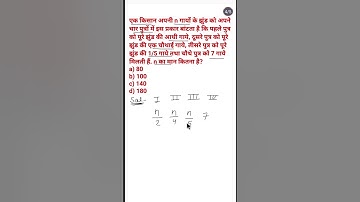 4/8
एक किसान अपनी n गायों के झुंड को अपने
चार पुत्रों में इस प्रकार बांटता है कि पहले पुत्र
को पूरे झुंड की आधी गाये, दूसरे पुत्र को पूरे
झुंड की एक चौथाई गाये, तीसरे पुत्र को पूरे
झुंड की 1/5 गाये तथा चौथे पुत्र को 7 गाये
मिलती हैं. n का मान कितना है?
a) 80
b) 100
c) 140
d) 180
Sol- I II III IV
n/2 n/4 n/5 7